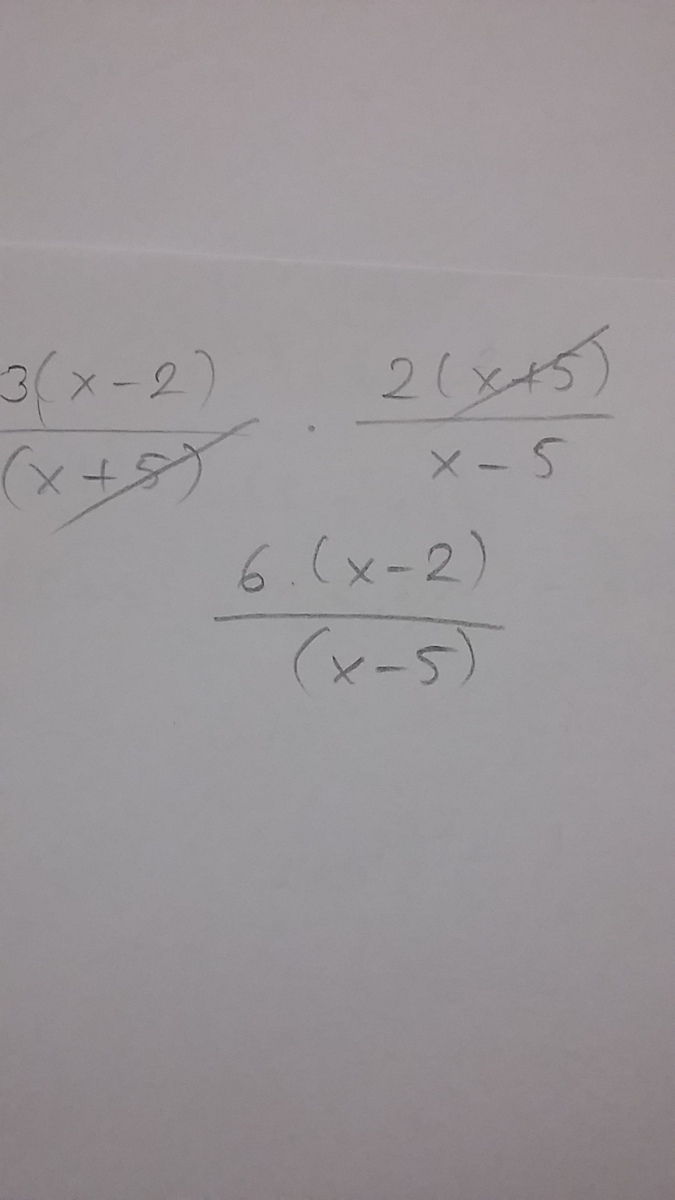 3(x-2) / (x+5) . 2(x+5) / x-5
6.(x-2) / (x-5)